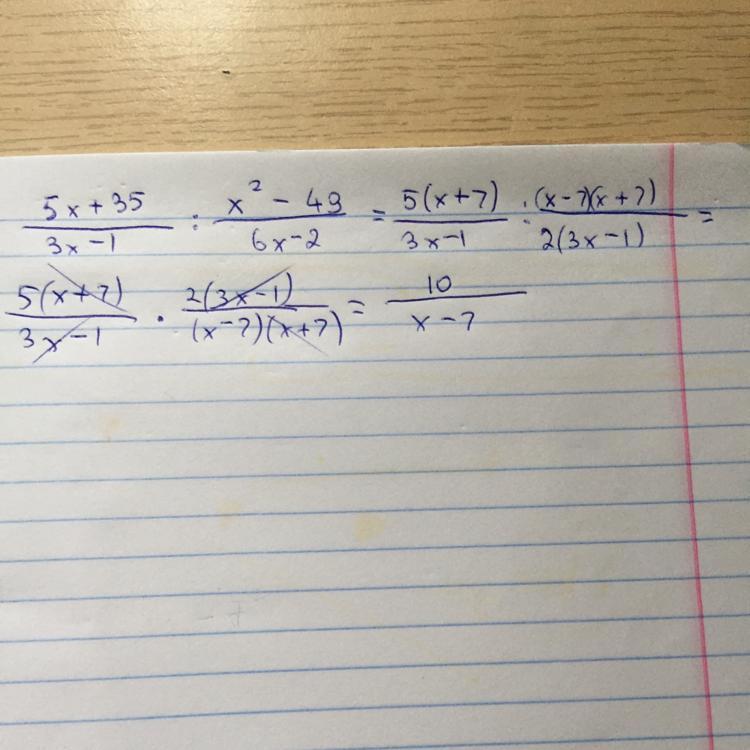 (5x+35)/(3x-1) : (x²-49)/(6x-2) = 5(x+7)/(3x-1) : (x-7)(x+7)/2(3x-1) =
5(x+7)/(3x-1) · 2(3x-1)/(x-7)(x+7) = 10/(x-7)